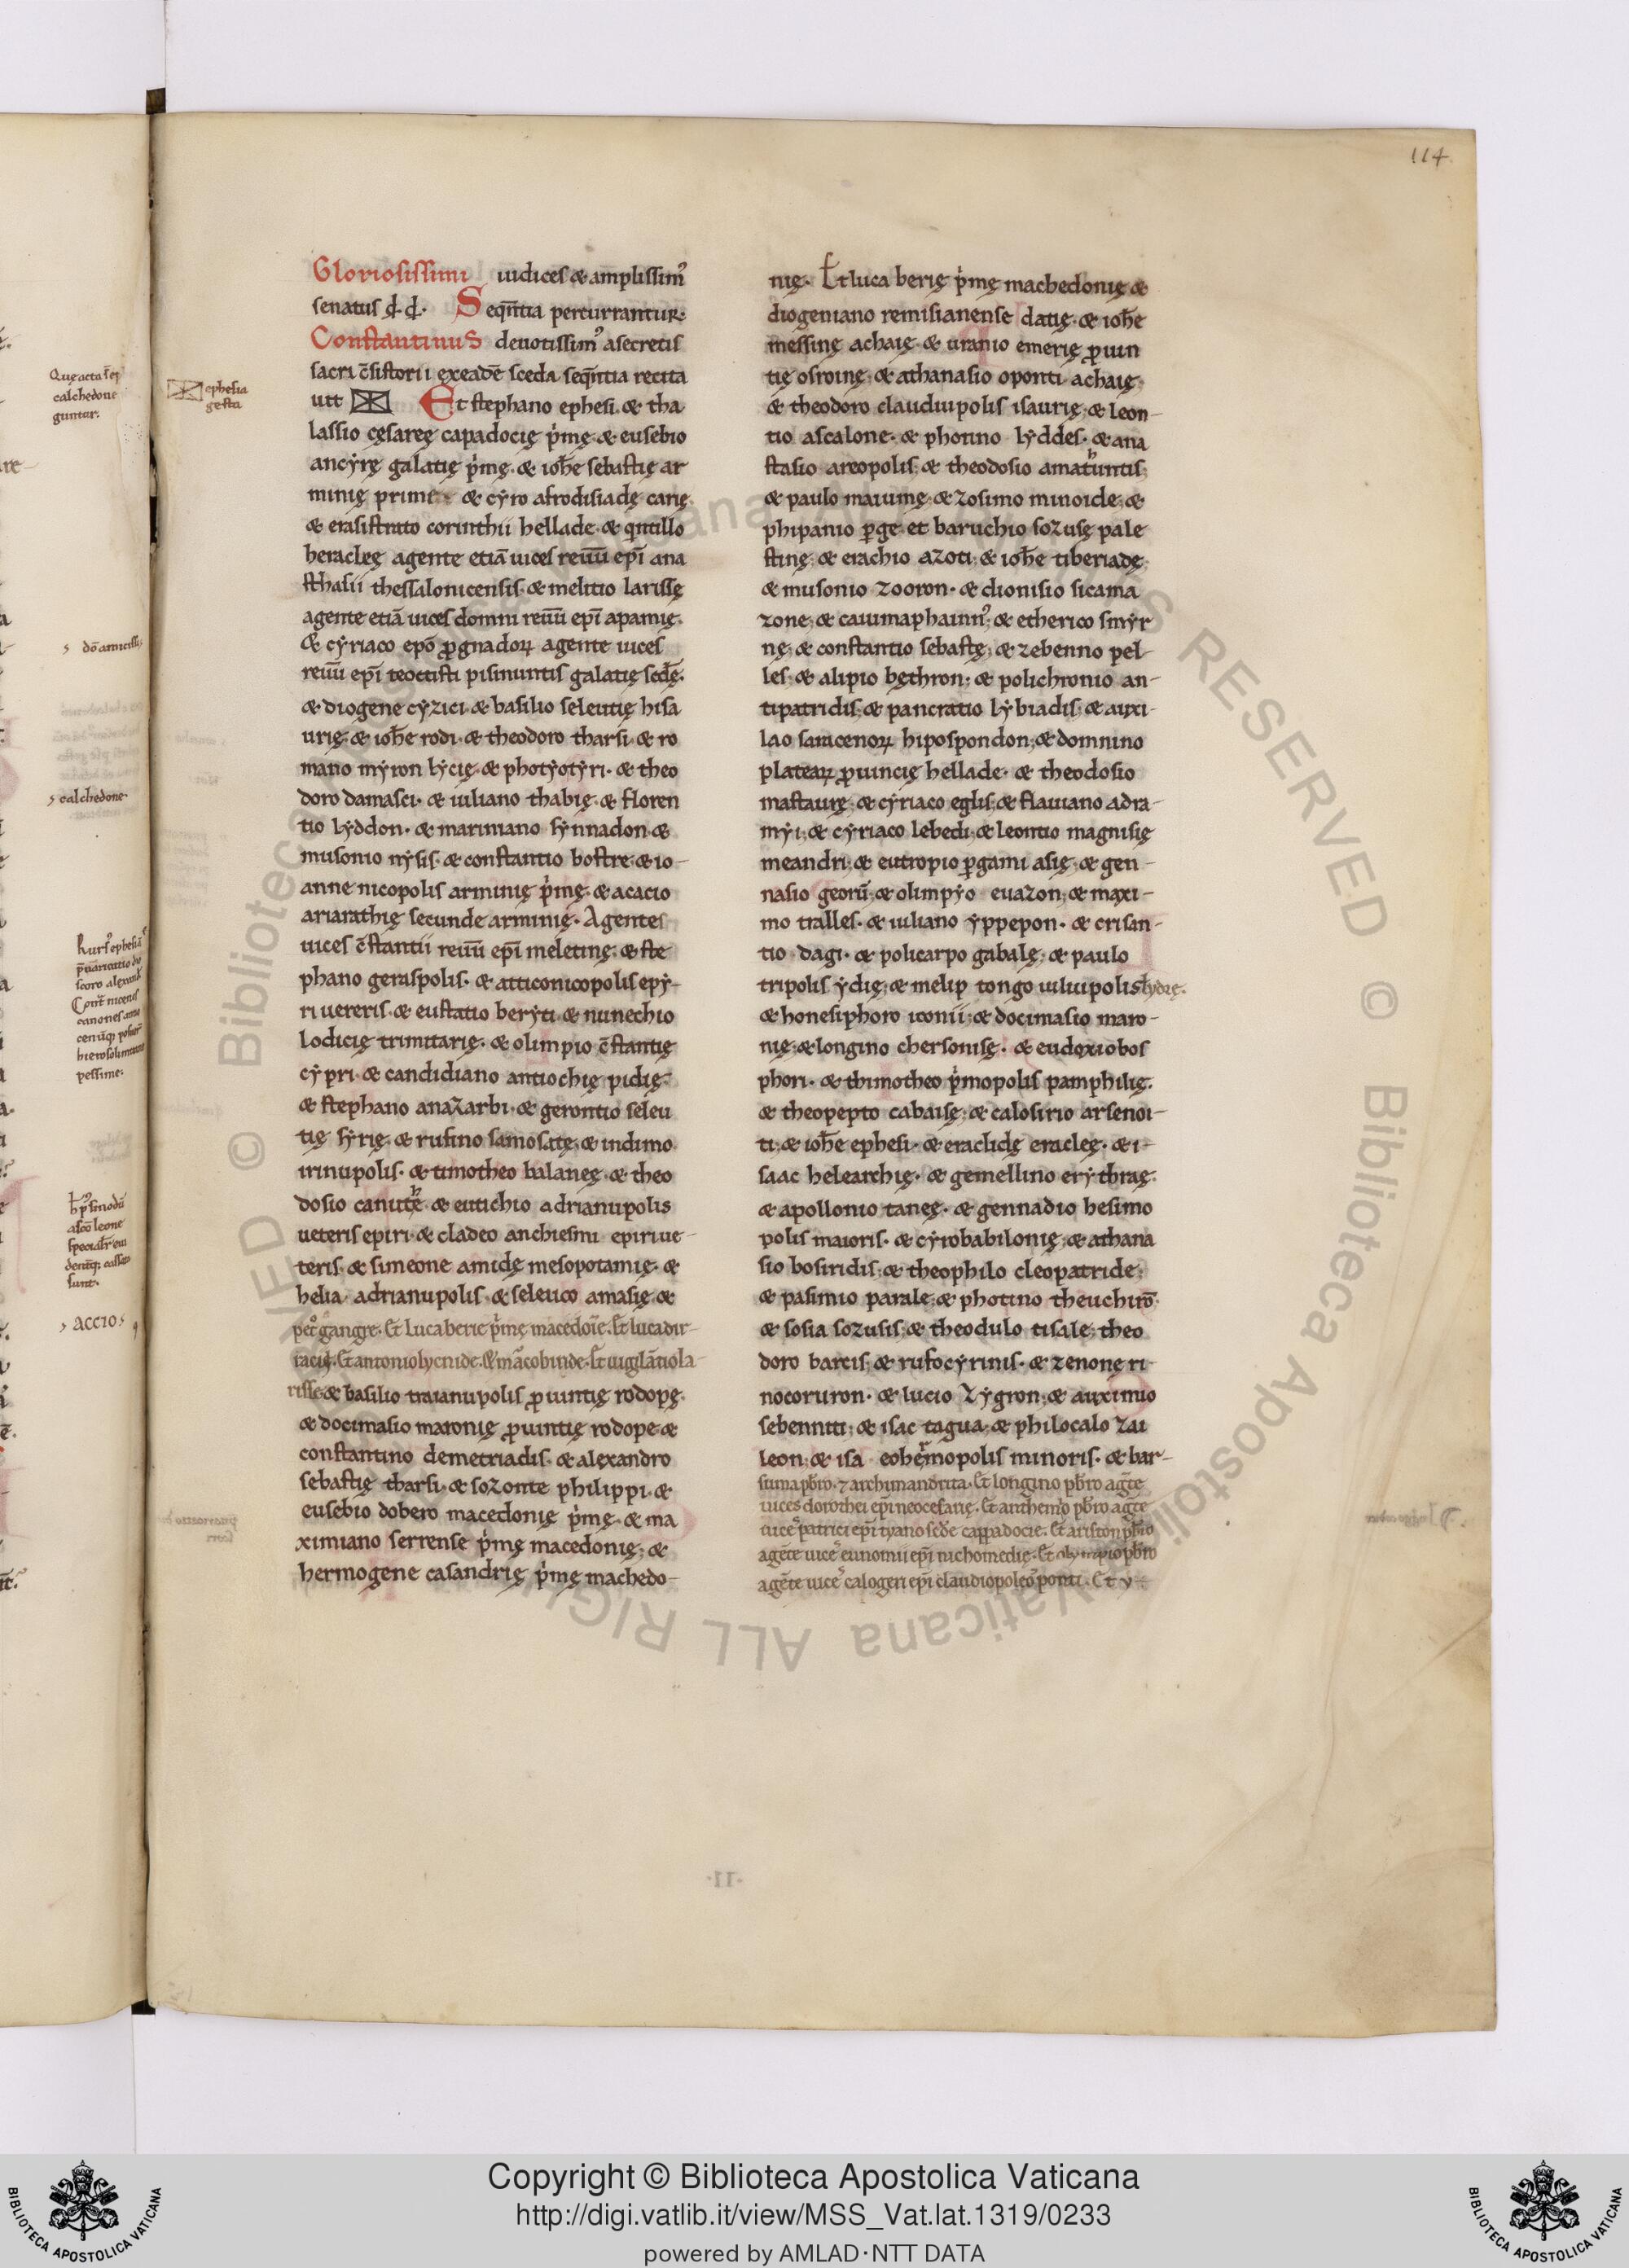 114
Gloriosissimi iudices & amplissim᾿
senatus d̵.d̵. Seqn̄tia percurrantur.
Constantinus deuotissim᾿ asecretis
sacri c̄sistorii exeadē sceda seqn̄tia recita
uit Et stephano ephesi. & tha
lassio cęsareę capadocię p̍mę. & eusebio
ancẏrę galatię p̍mę. & ioh̄e sebastię ar
minię prime & cẏro afrodisiadę carię
& erasistrato corinthii hellade. & qntillo
heraclęę agente etiā uices reuū ep̄i ana
sthalii thessalonicensis. & melitio larissę
agente etiā uices domni reuū ep̄i apamię.
& cẏriaco ep̄o agente uices
reuū ep̄i teoctisti pisinuntis galatię scdę.
& diogene cẏzici. & basilio seleutię hisa
urię. & ioh̄e rodi. & theodoro tharsi. & ro
mano mẏron lẏcię. & photẏotẏri. & theo
doro damasci. & iuliano thabię. & floren
tio lẏddon. & mariniano sẏnnadon. &
musonio nẏsis. & constantio bostre. & io-
anne nicopolis arminię p̍mę. & acacio
ariarathię secunde arminię. Agentes
uices c̄stantii reuū ep̄i meletinę. & ste
phano geraspolis. & atticonicopolis epẏ-
ri uereris. & eustatio berẏti. & nunechio
lodicię trimitarię. & olimpio c̄stantię
cẏpri. & candidiano antiochię pidię.
& stephano anazarbi. & gerontio seleu
tię sẏrię. & rufino samosatę. & indimo
irinupolis. & timotheo balaneę. & theo
dosio canutē. & eutichio adrianupolis
ueteris epiri. & cladeo anchiesmi epiri ue-
teris. & simeone amidę mesopotamię. &
helia adrianupolis. & seleuco amasię. &
pet᾿ gangre. Et luca berie p̍mę macedoīe. Et luca dir-
racię. Et antonio lycnide. Et uigilātio la-
risse & basilio traianupolis ꝓuintię rodopę.
& docimasio maronię ꝓuintię rodope. &
constantino demetriadis. & alexandro
sebastię tharsi. & sozonte philippi. &
eusebio dobero macedonię p̍mę. & ma
ximiano serrense p̍mę macedonię. &
hermogene casandrię p̍mę machedo-
nię. Et luca berię p̍mę machedonię &
diogeniano remisianense datię. & ioh̄e
messinę achaię. & uranio emerię ꝓuin
tię osroinę. & athanasio oponti achaię.
& theodoro claudiupolis isaurię. & leon-
tio ascalone. & photino lẏddes. & ana
stasio areopolis. & theodosio amatuntis.
& paulo maiumę. & zosimo minoide. &
phipanio ꝑge. et baruchio sozusę pale
stinę. & erachio azoti. & ioh̄e tiberiadę.
& musonio zooron. & dionisio sicama
zone. & caiumaphainn᾿. & etherico smẏr
nę. & constantio sebastę. & zebenno pel-
les. & alipio bęthron. & polichronio an-
tipatridis. & pancratio lẏbiadis. & auxi-
lao saracenoꝝ hipospondon. & domnino
plateaꝝ ꝓuincię hellade. & theodosio
mastaurę. & cẏriaco eglis. & flauiano adra-
mẏi. & cẏriaco lebedi. & leontio magnisię
meandri. & eutropio ꝑgami asię. & gen-
nasio georū. & olimpẏo euazon. & maxi-
mo tralles. & iuliano ẏppepon. & crisan-
tio dagi. & policarpo gabalę. & paulo
tripolis ẏdię. & melip tongo iuliupolis lydię.
& honesiphoro iconii. & docimasio maro-
nię. & longino chersonisę. & eudoxio bos
phori. & thimotheo p̍mopolis pamphilię.
& theopepto cabaisę. & calosirio arsenoi-
ti. & ioh̄e ephesi. & eraclidę eracleę. & i-
saac helearchię. & gemellino erẏthraę.
& apollonio tanęę. & gennadio hesimo
polis maioris. & cẏrobabilonię. & athana
sio bosiridis. & theophilo cleopatride.
& pasimio parale. & photino theuchirō.
& sosia sozusis. & theodulo tisale. theo
doro barcis. & rufocẏrinis. & zenonę ri-
nocoruron. & lucio zẏgron. & auximio
sebenniti. & isac tagua. & philocalo zai
leon. & isa eohemopolis minoris. & bar-
suma pb̄ro. ⁊ archimandrita. Et longino pb̄ro agēte
uices dorothei ep̄i neocesarię. Et anthemio pb̄ro agēte
uice᾿ patrici ep̄i tyano scd̄e cappadocie. Et ariston pb̄ro
agēte uice᾿ eunomii ep̄i nichomedię. Et olympio pb̄ro
agēte uice᾿ calogeri ep̄i claudiopoleo᾿ ponti. Et v
ephesia
gesta
Que acta
calchedone
guntur.
calchedone.
pessime.
asc̄o leone
sunt.
ACCIO
Copyright © Biblioteca Apostolica Vaticana
http://digi.vatlib.it/view/MSS_Vat.lat.1319/0233
powered by AMLAD·NTT DATA
BIBLIOTECA APOSTOLICA VATICANA
BIBLIOTECA APOSTOLICA VATICANA
© Biblioteca Apostolica Vaticana ALL RIGHTS RESERVED